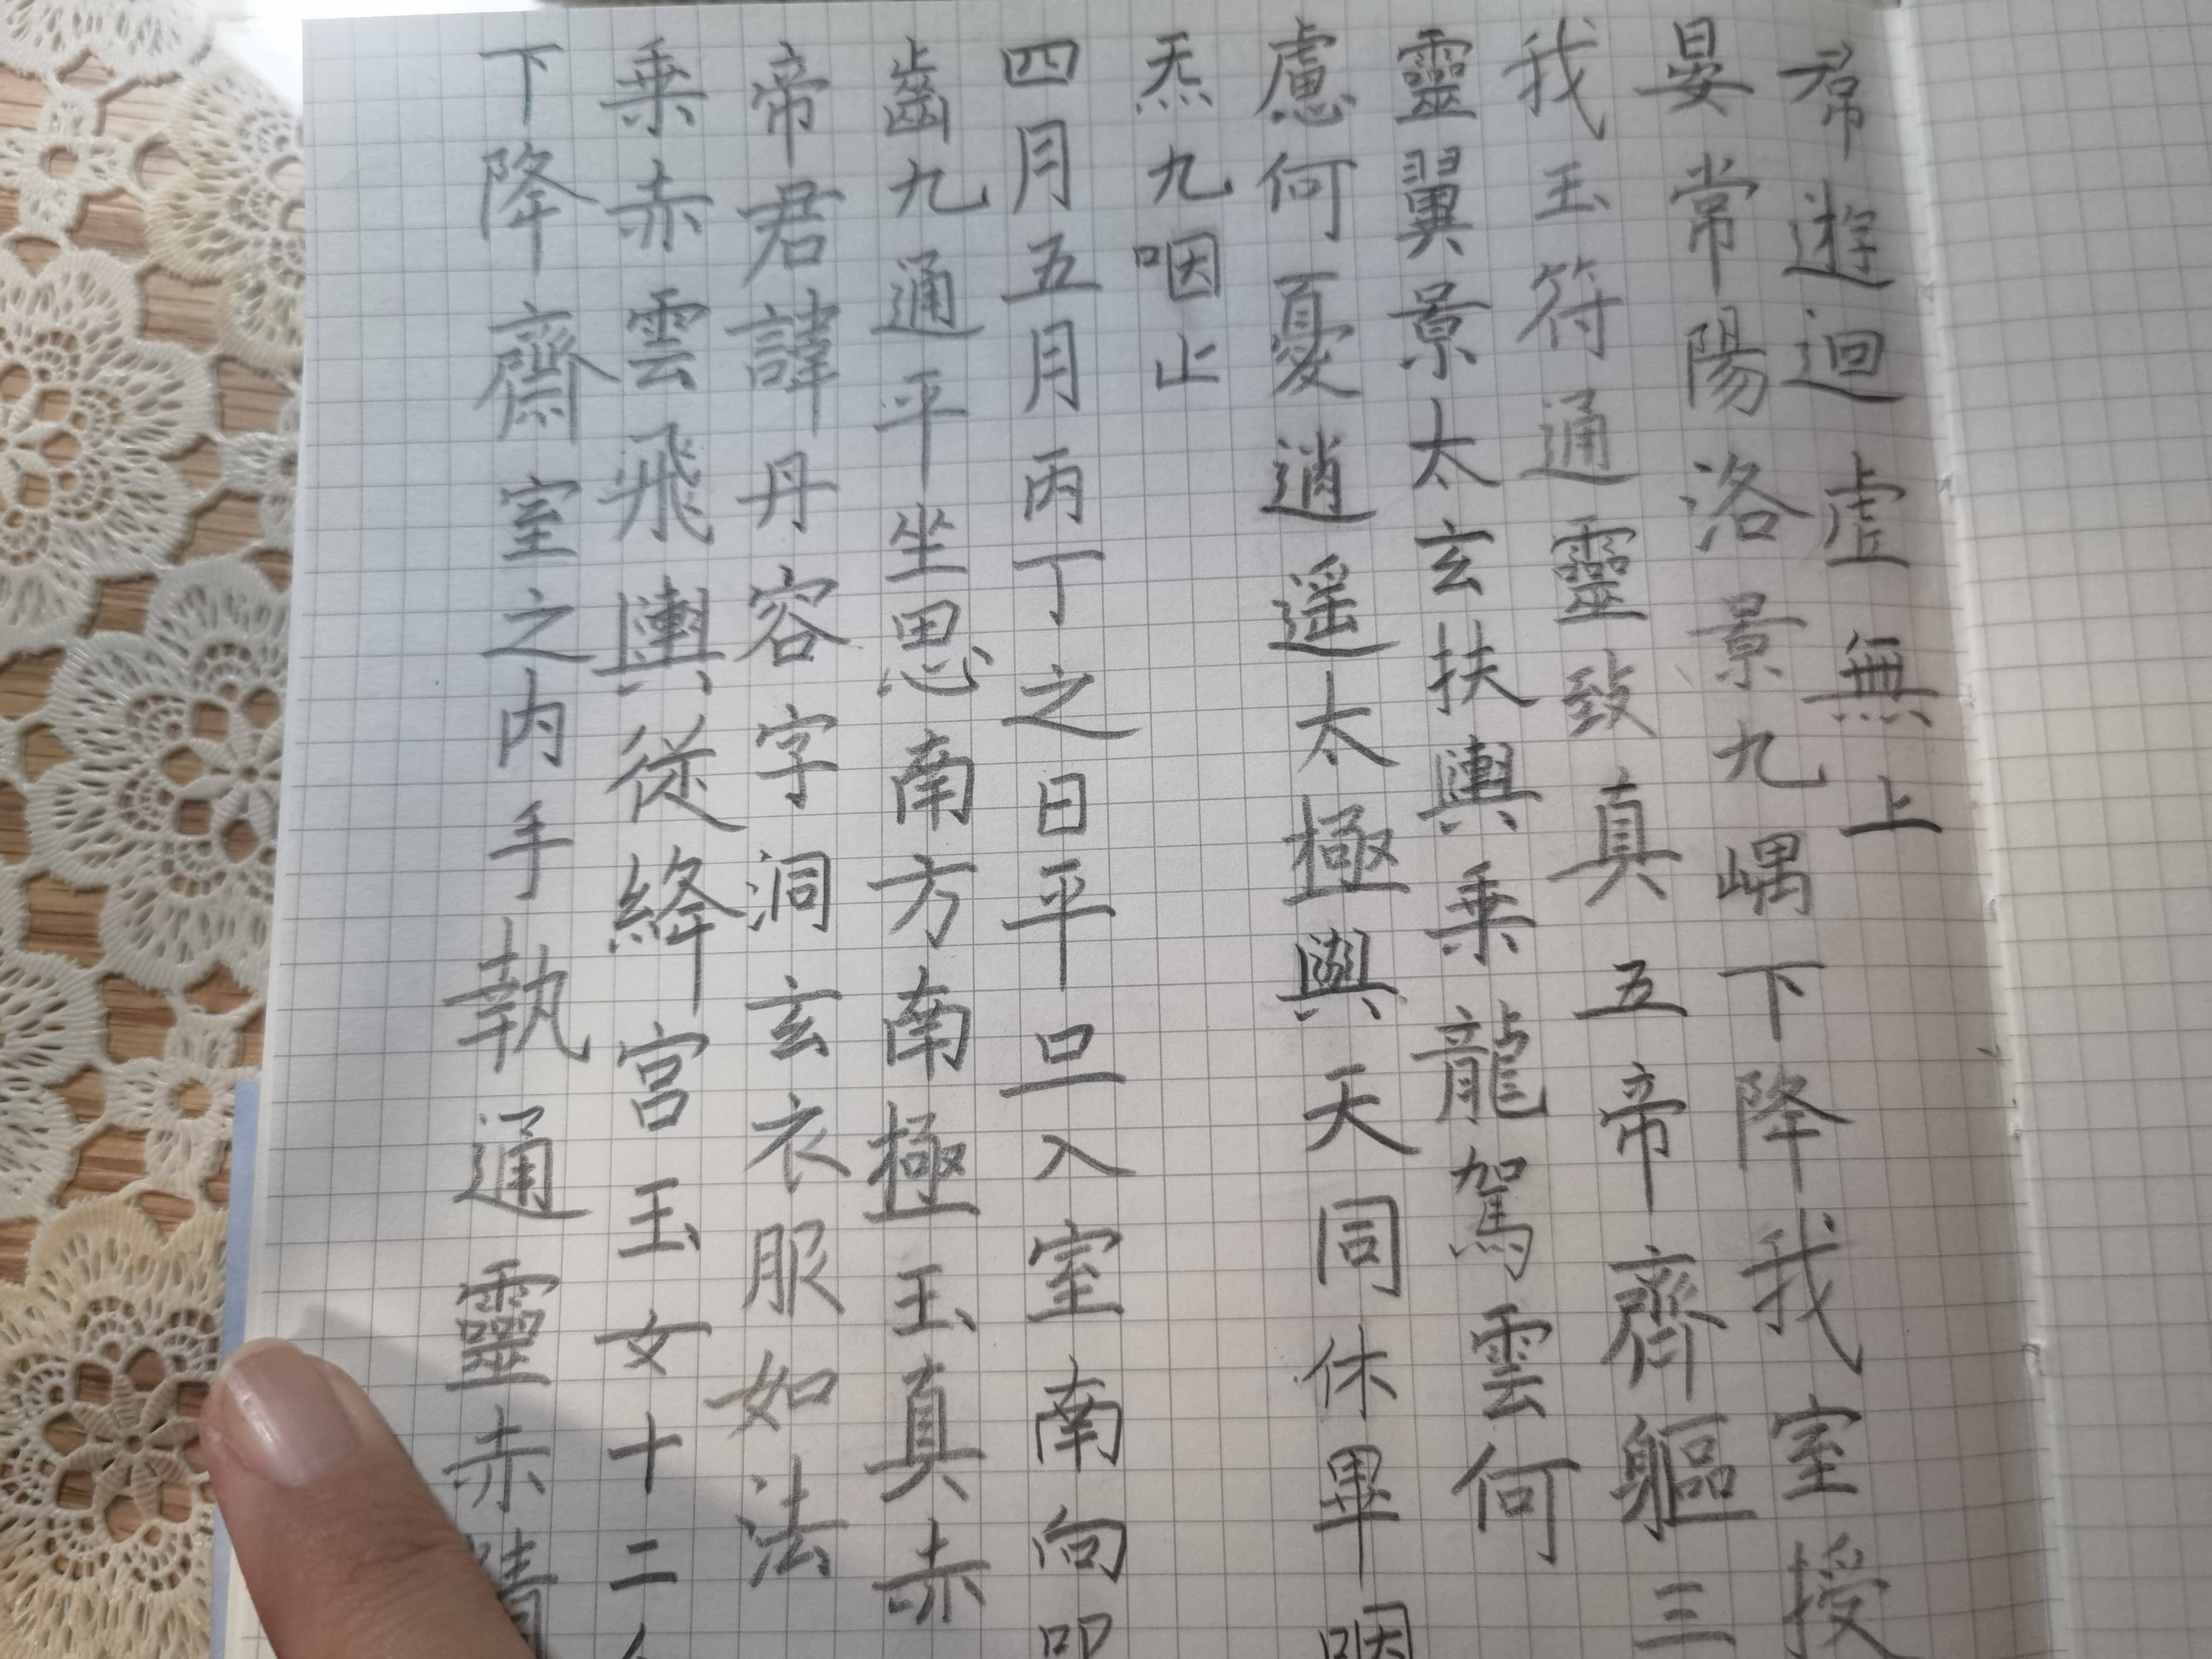 遊迴虛無上
晏常陽洛景九嵎下降我室授
我玉符通靈致真五帝齊軀三
靈翼景太玄扶輿乗龍駕雲何
慮何憂逍遥太極與天同休畢咽
炁九咽止
四月五月丙丁之日平旦入室南向叩
齒九通平坐思南方南極玉真赤
帝君諱丹容字洞玄衣服如法
乗赤雲飛輿從絳宮玉女十二
下降齋室之内手執通靈赤精